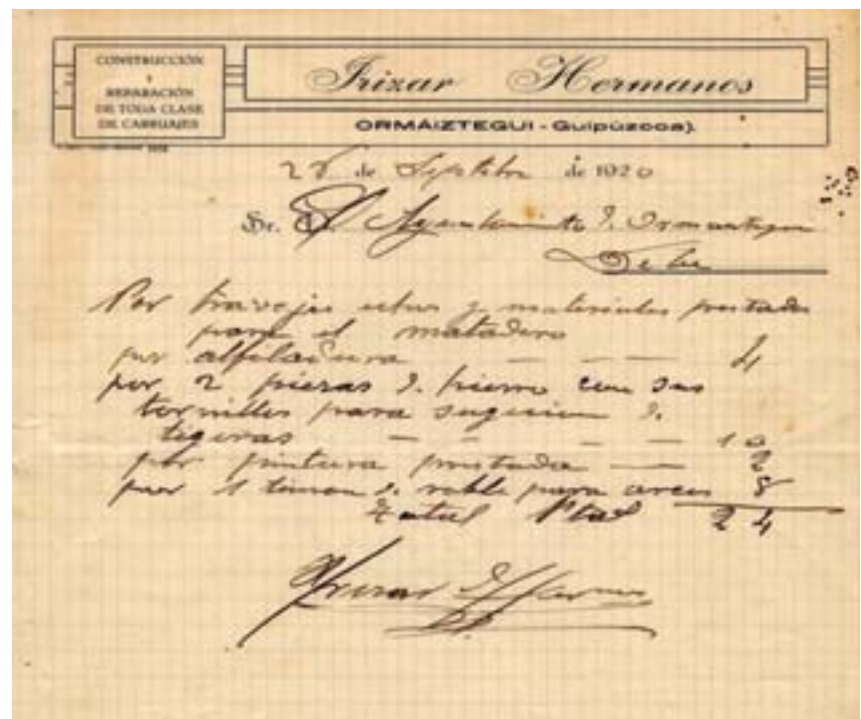 CONSTRUCCIÓN
Y
REPARACIÓN
DE TODA CLASE
DE CARRUAJES
Irizar Hermanos
ORMÁIZTEGUI - Guipúzcoa).
de Septbre de 1920
Sr. El Ayuntamiento d. Ormaiztegui
Debe
Por travajos echos y materiales prestados
para el matadero
por alfiladura — — — 4
por 2 piezas d. hierro con sus
tornillos para sugecion d.
tigeras — — — — 10
por pintura prestada — 2
por 1 timon d. roble para arcos 8
Total Ptas 24
Yrizar Hermanos